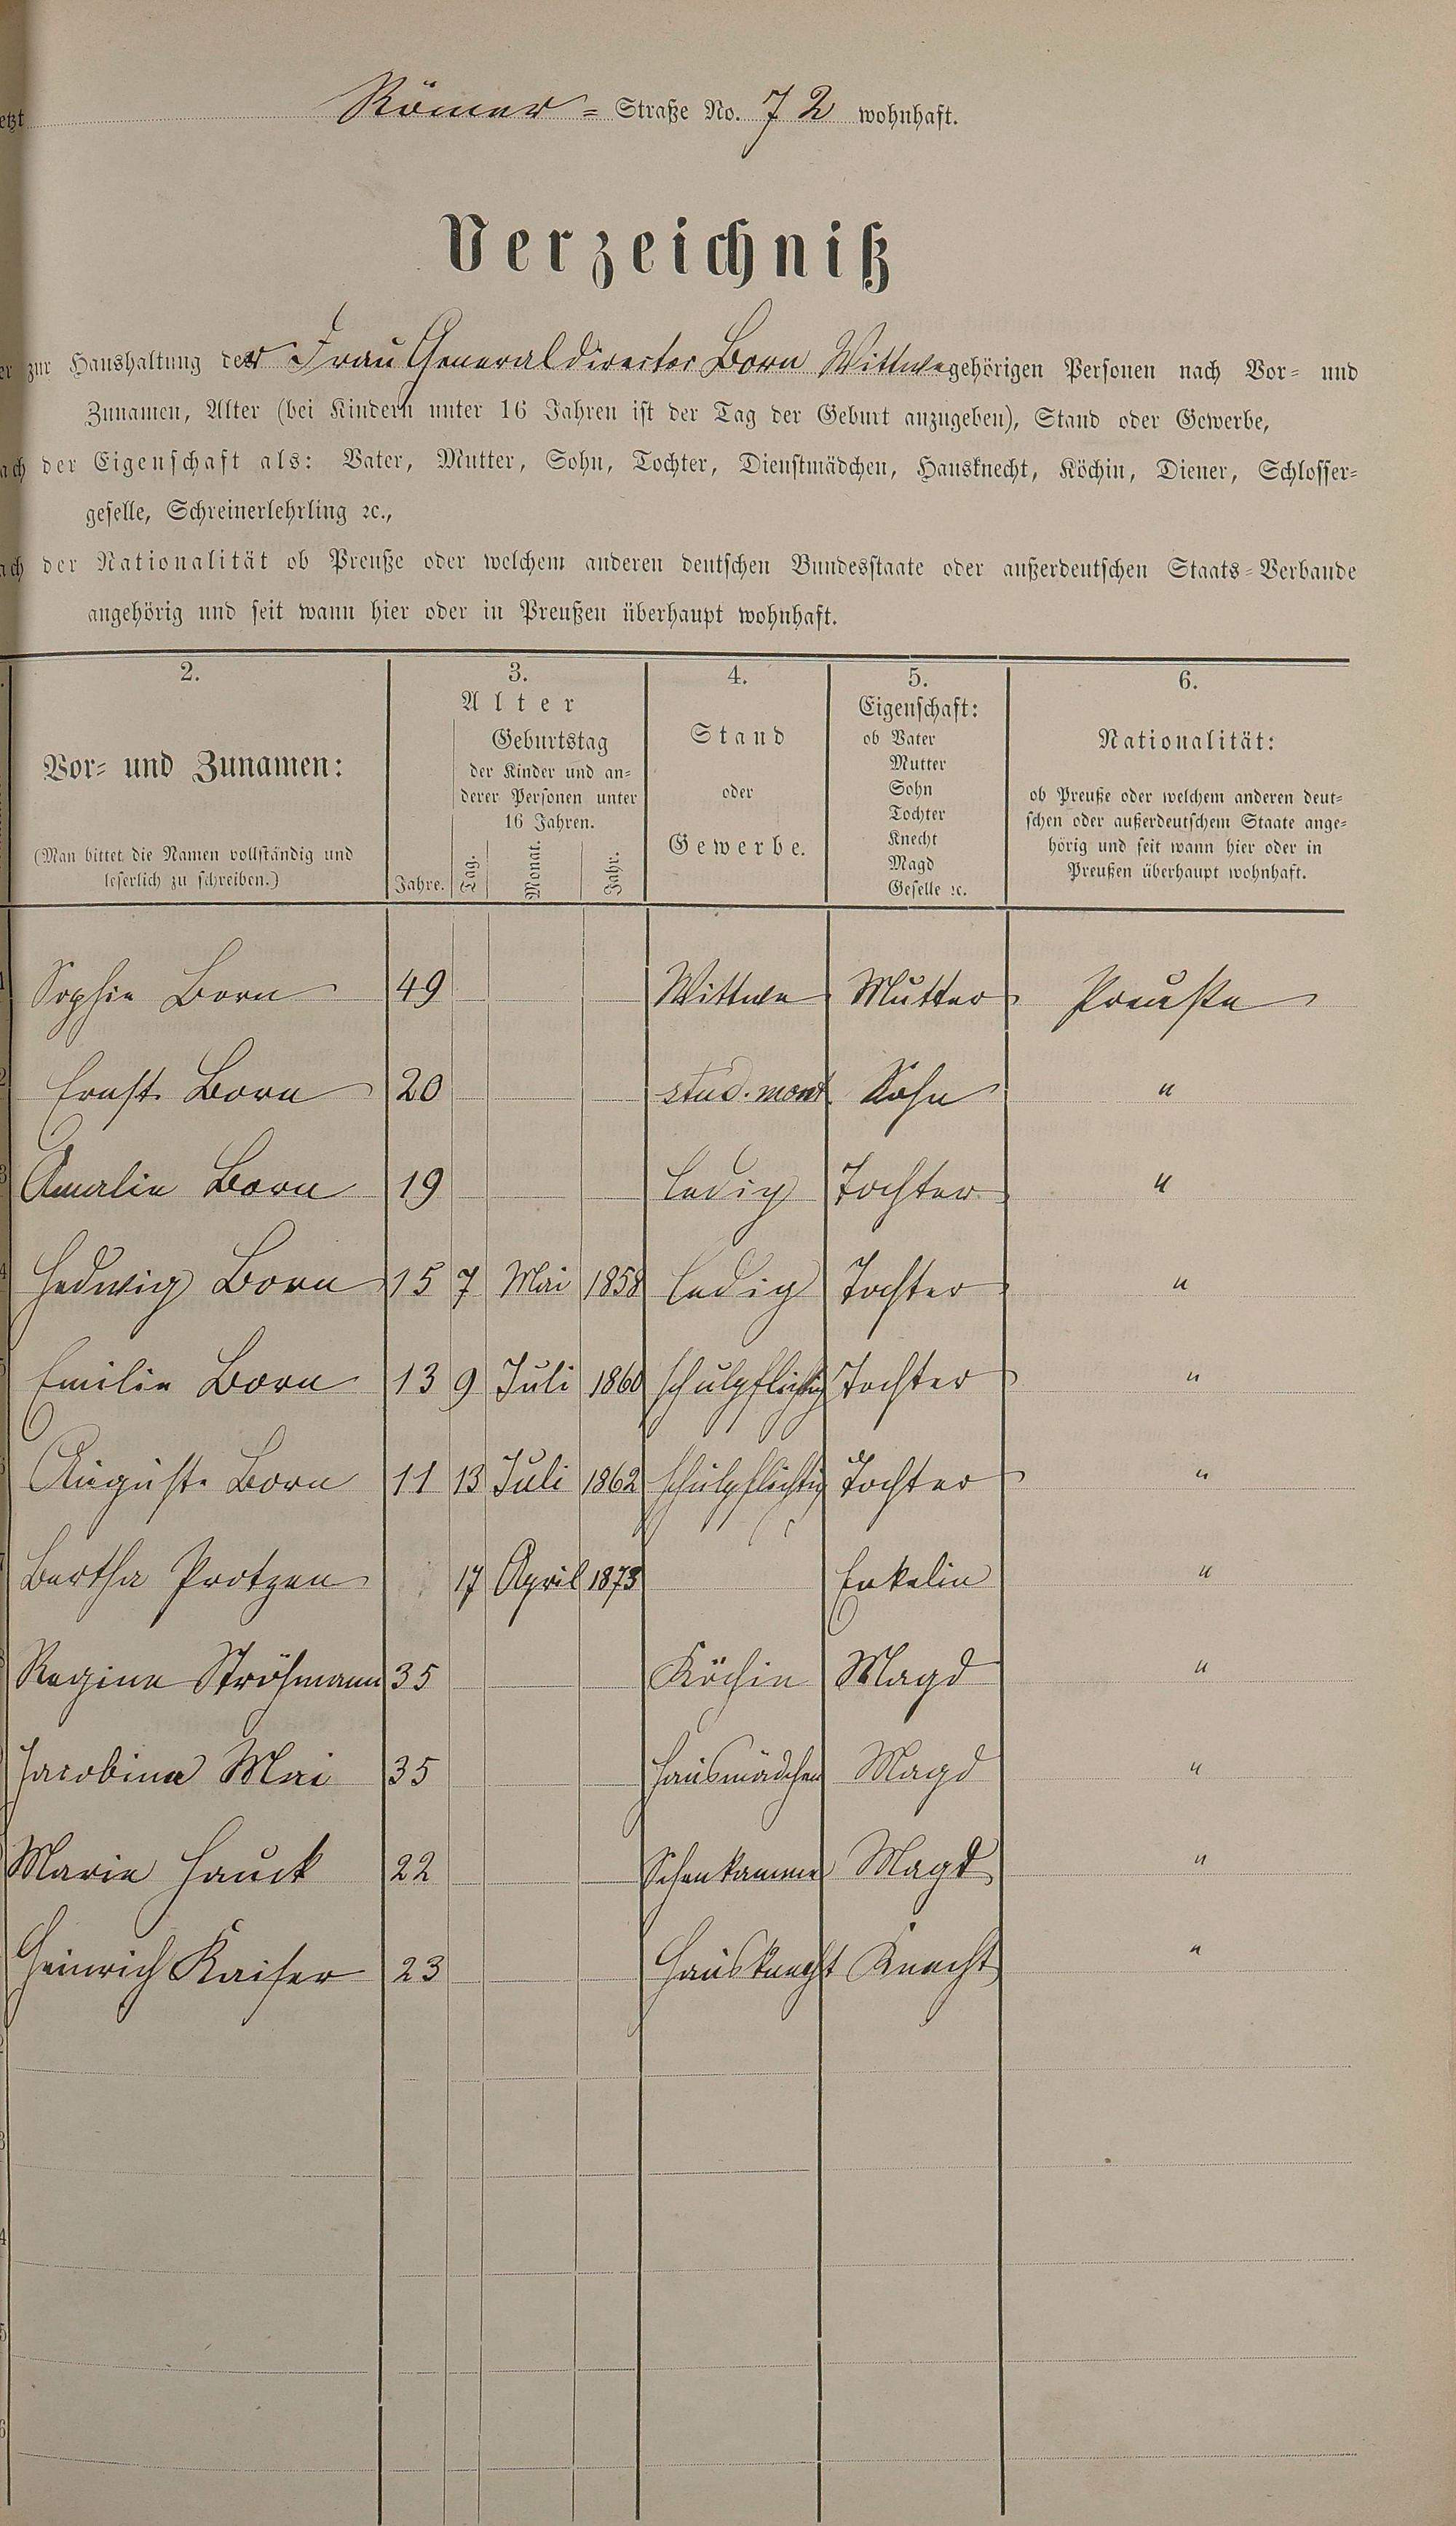 etzt Römer = Straße No. 72 wohnhaft.
Verzeichniß
er zur Haushaltung der Frau Generaldirector Born Wittwe gehörigen Personen nach Vor= und
Zunamen, Alter (bei Kindern unter 16 Jahren ist der Tag der Geburt anzugeben), Stand oder Gewerbe,
ach der Eigenschaft als: Vater, Mutter, Sohn, Tochter, Dienstmädchen, Hausknecht, Köchin, Diener, Schlosser=
geselle, Schreinerlehrling ꝛc.,
ach der Nationalität ob Preuße oder welchem anderen deutschen Bundesstaate oder außerdeutschen Staats=Verbande
angehörig und seit wann hier oder in Preußen überhaupt wohnhaft.
2.
Vor= und Zunamen:
(Man bittet die Namen vollständig und
leserlich zu schreiben.)
3.
Alter
Geburtstag
der Kinder und an=
derer Personen unter
16 Jahren.
Jahre. Tag. Monat. Jahr.
4.
Stand
oder
Gewerbe.
5.
Eigenschaft:
ob Vater
Mutter
Sohn
Tochter
Knecht
Magd
Geselle ꝛc.
6.
Nationalität:
ob Preuße oder welchem anderen deut=
schen oder außerdeutschem Staate ange=
hörig und seit wann hier oder in
Preußen überhaupt wohnhaft.
Sophie Born 49 Wittwe Mutter Preuße
Ernst Born 20 stud. mont. Sohn "
Amalie Born 19 ledig Tochter "
Hedwig Born 15 7 Mai 1858 ledig Tochter "
Emilie Born 13 9 Juli 1860 schulpflichtig Tochter "
Auguste Born 11 13 Juli 1862 schulpflichtig Tochter "
Bertha Protzen 17 April 1873 Enkelin "
Regine Ströhmann 35 Köchin Magd "
Jacobina Mai 35 Hausmädchen Magd "
Marie Hauck 22 Schenkamme Magd "
Heinrich Kaiser 23 Hausknecht Knecht "